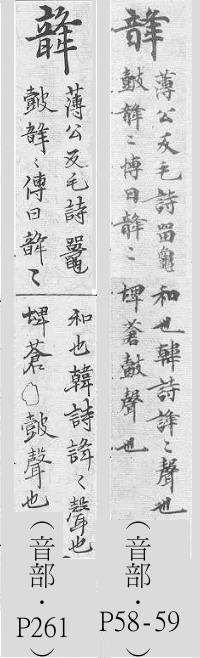 韸
薄公反毛詩鼉
皷韸〻傳曰韸〻
和也韓詩韸〻聲也
埤蒼皷聲也
(音部・P58-59)
韸
薄公反毛詩鼉
皷韸〻傳曰韸〻
和也韓詩韸〻聲也
埤蒼〇皷聲也
(音部・P261)